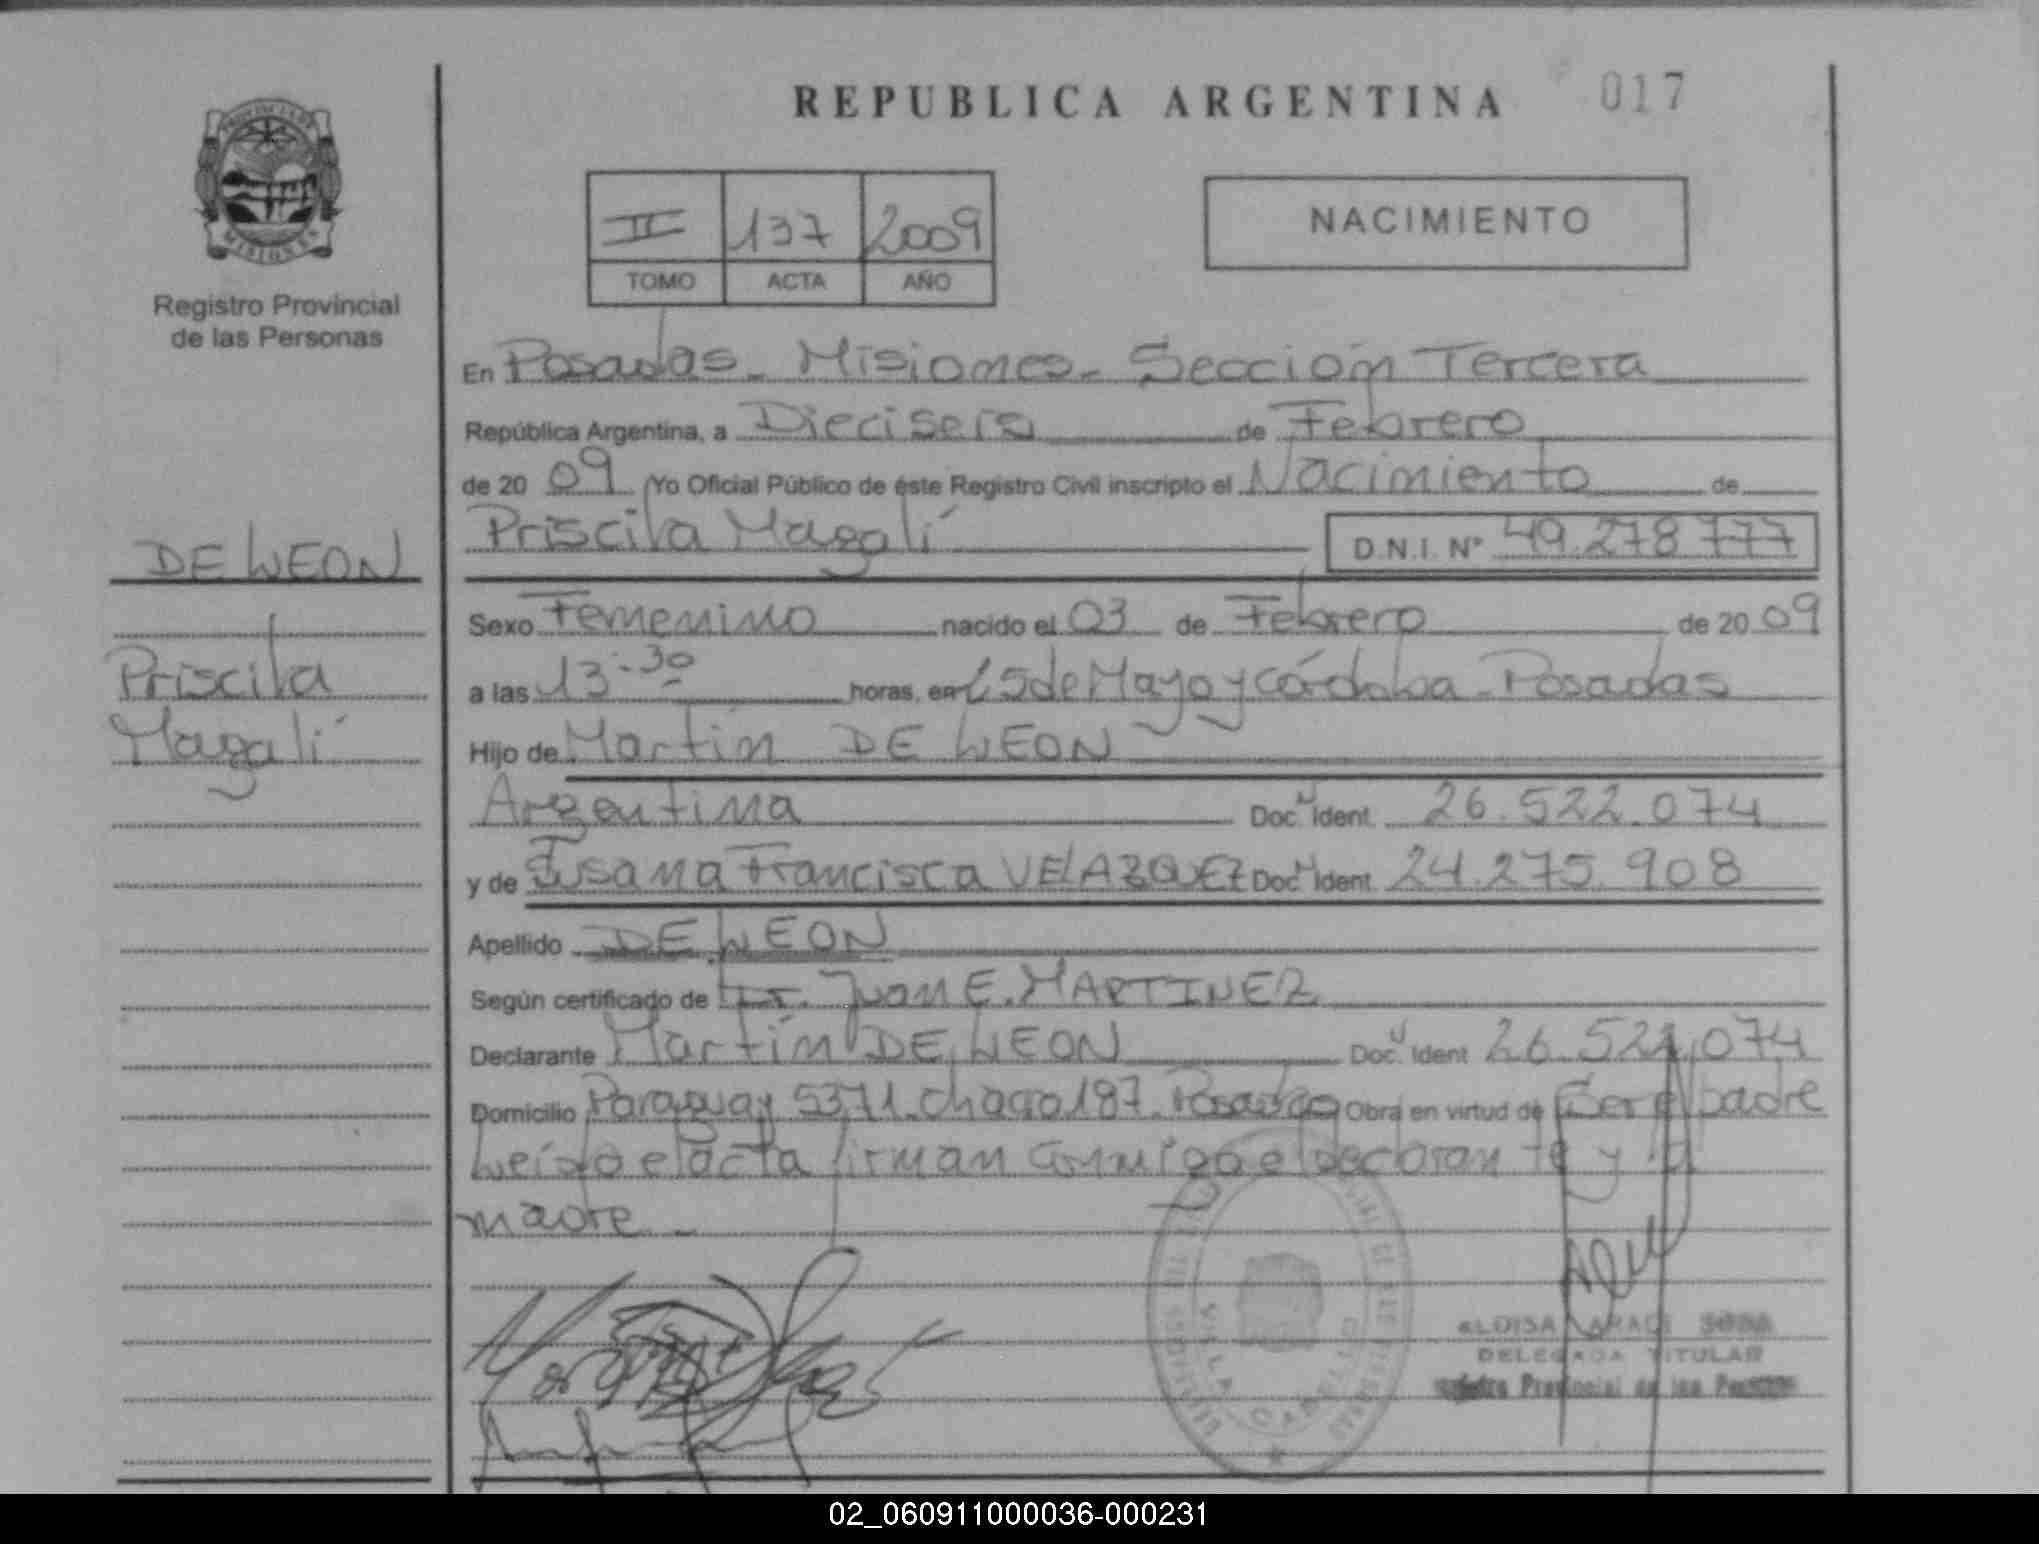 REPUBLICA ARGENTINA 017
PROVINCIA DE
MISIONES
Registro Provincial
de las Personas
II 137 2009
TOMO ACTA AÑO
NACIMIENTO
En Posadas - Misiones - Sección Tercera
República Argentina, a Dieciseis de Febrero
de 20 09 Yo Oficial Público de éste Registro Civil inscripto el Nacimiento de
Priscila Magalí D.N.I. Nº 49.278.777
DE LEON
Priscila
Magalí
Sexo Femenino nacido el 03 de Febrero de 20 09
a las 13:30 horas, en 25 de Mayo y Córdoba - Posadas
Hijo de Martín DE LEON
Argentina Doc. Ident. 26.522.074
y de Susana Francisca VELAZQUEZ Doc. Ident. 24.275.908
Apellido DE LEON
Según certificado de Juan E. MARTINEZ
Declarante Martín DE LEON Doc. Ident. 26.522.074
Domicilio Paraguay 5371. Chaca 187. Posadas Obra en virtud de Ser el padre
Leída el acta firman conmigo el declarante y la
madre -
VILLA CABELLO
ARACI SOSA
DELEGADA TITULAR
Provincial de las Personas
02_060911000036-000231